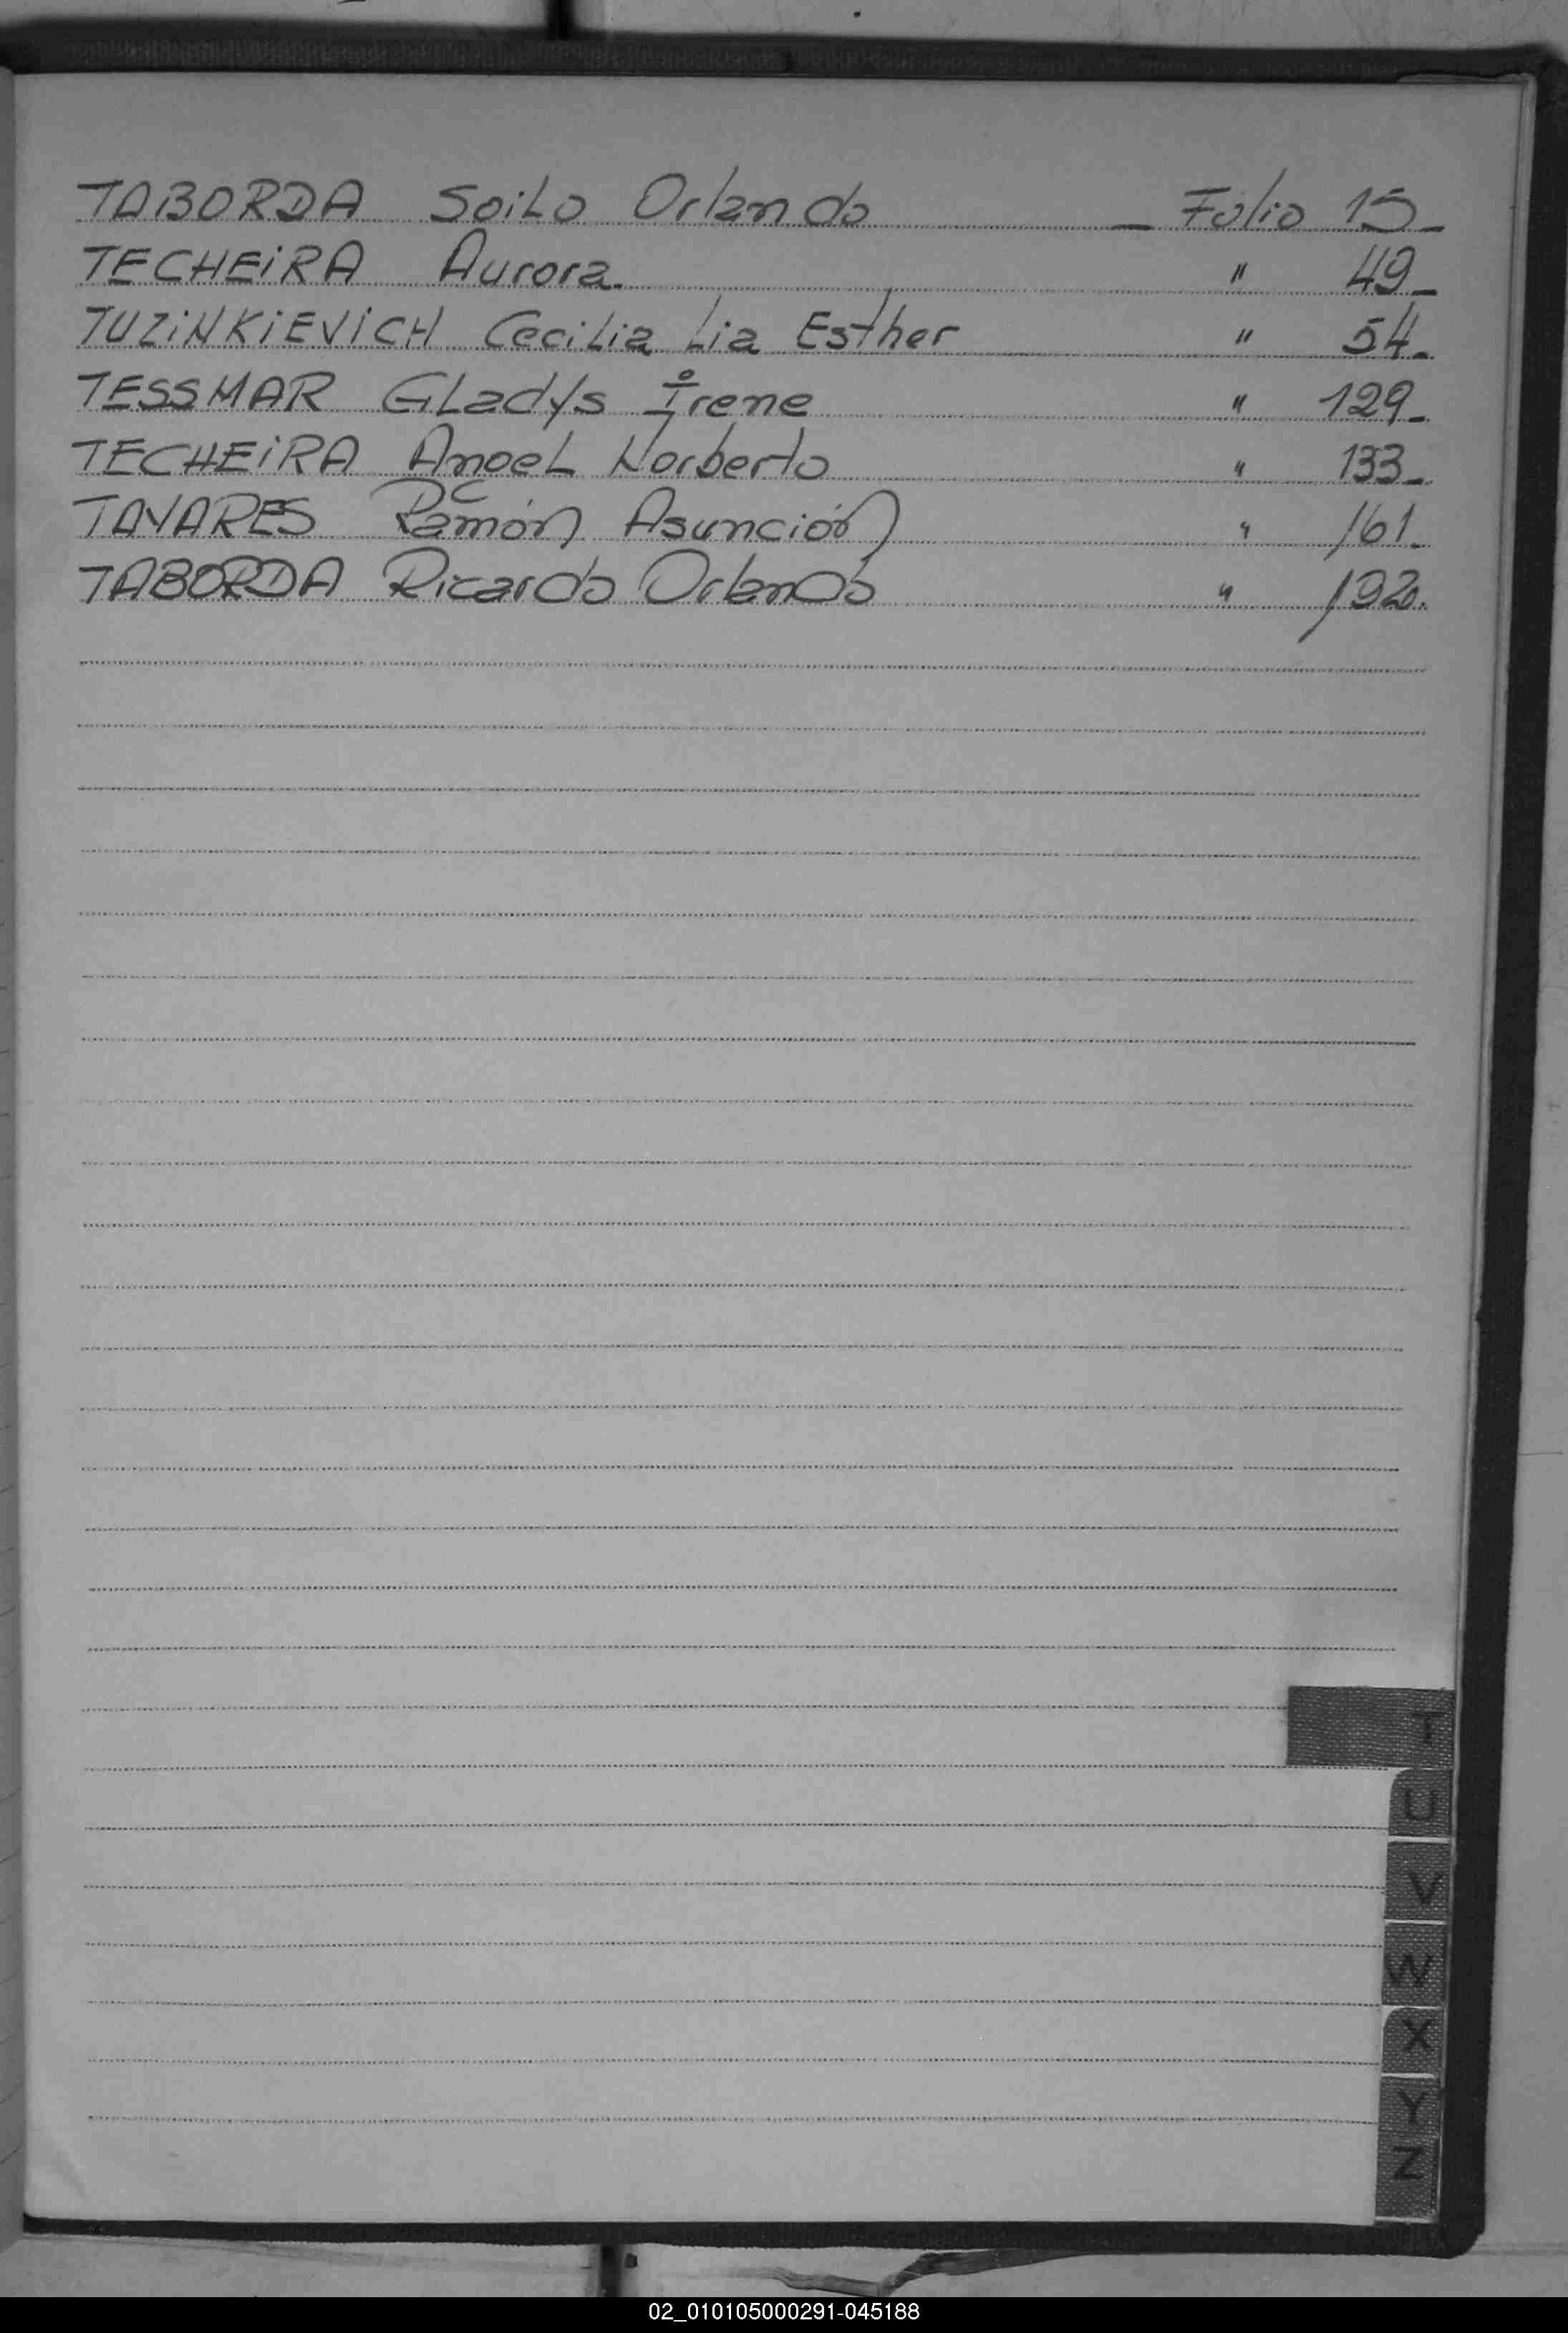 TABORDA Soilo Orlando _ Folio 15_
TECHEiRA Aurora. " 49_
TUZiNKiEViCH Cecilia Lia Esther " 54_
TESSMAR GLadys Irene " 129_
TECHEiRA AngeL Norberto " 133_
TAVARES Ramón Asunción " 161_
TABORDA Ricardo Orlando " 192.
T
U
V
W
X
Y
Z
02_010105000291-045188